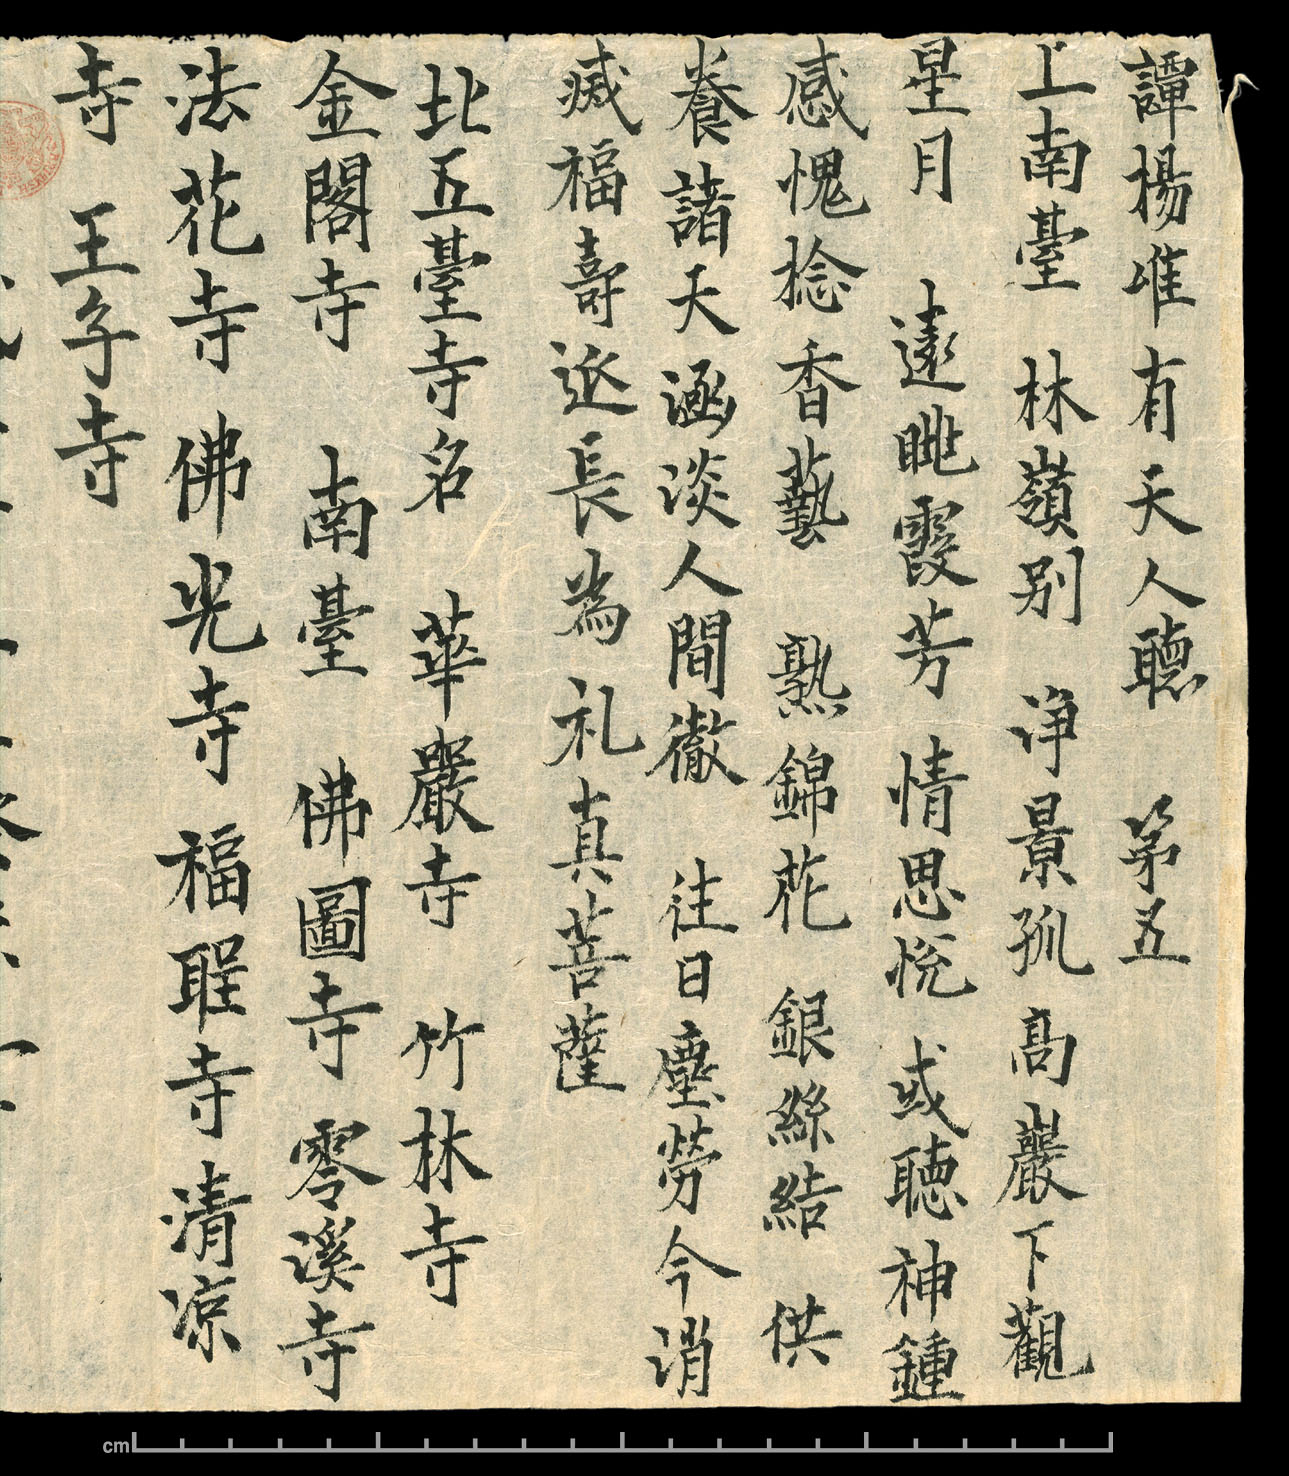 譚楊唯有天人聽　第五
上南臺　林嶺別　淨景孤高巖下觀
星月　遠眺霞芳　情思悅　或聽神鍾
感愧捻香藝　熟錦花　銀絲結　供
養諸天涵淡人間徹　往日塵勞今消
滅福壽延長為礼真菩薩
北五臺寺名　華嚴寺　竹林寺
金閣寺　南臺　佛圖寺　零溪寺
法花寺　佛光寺　福聖寺　清凉
寺　王子寺